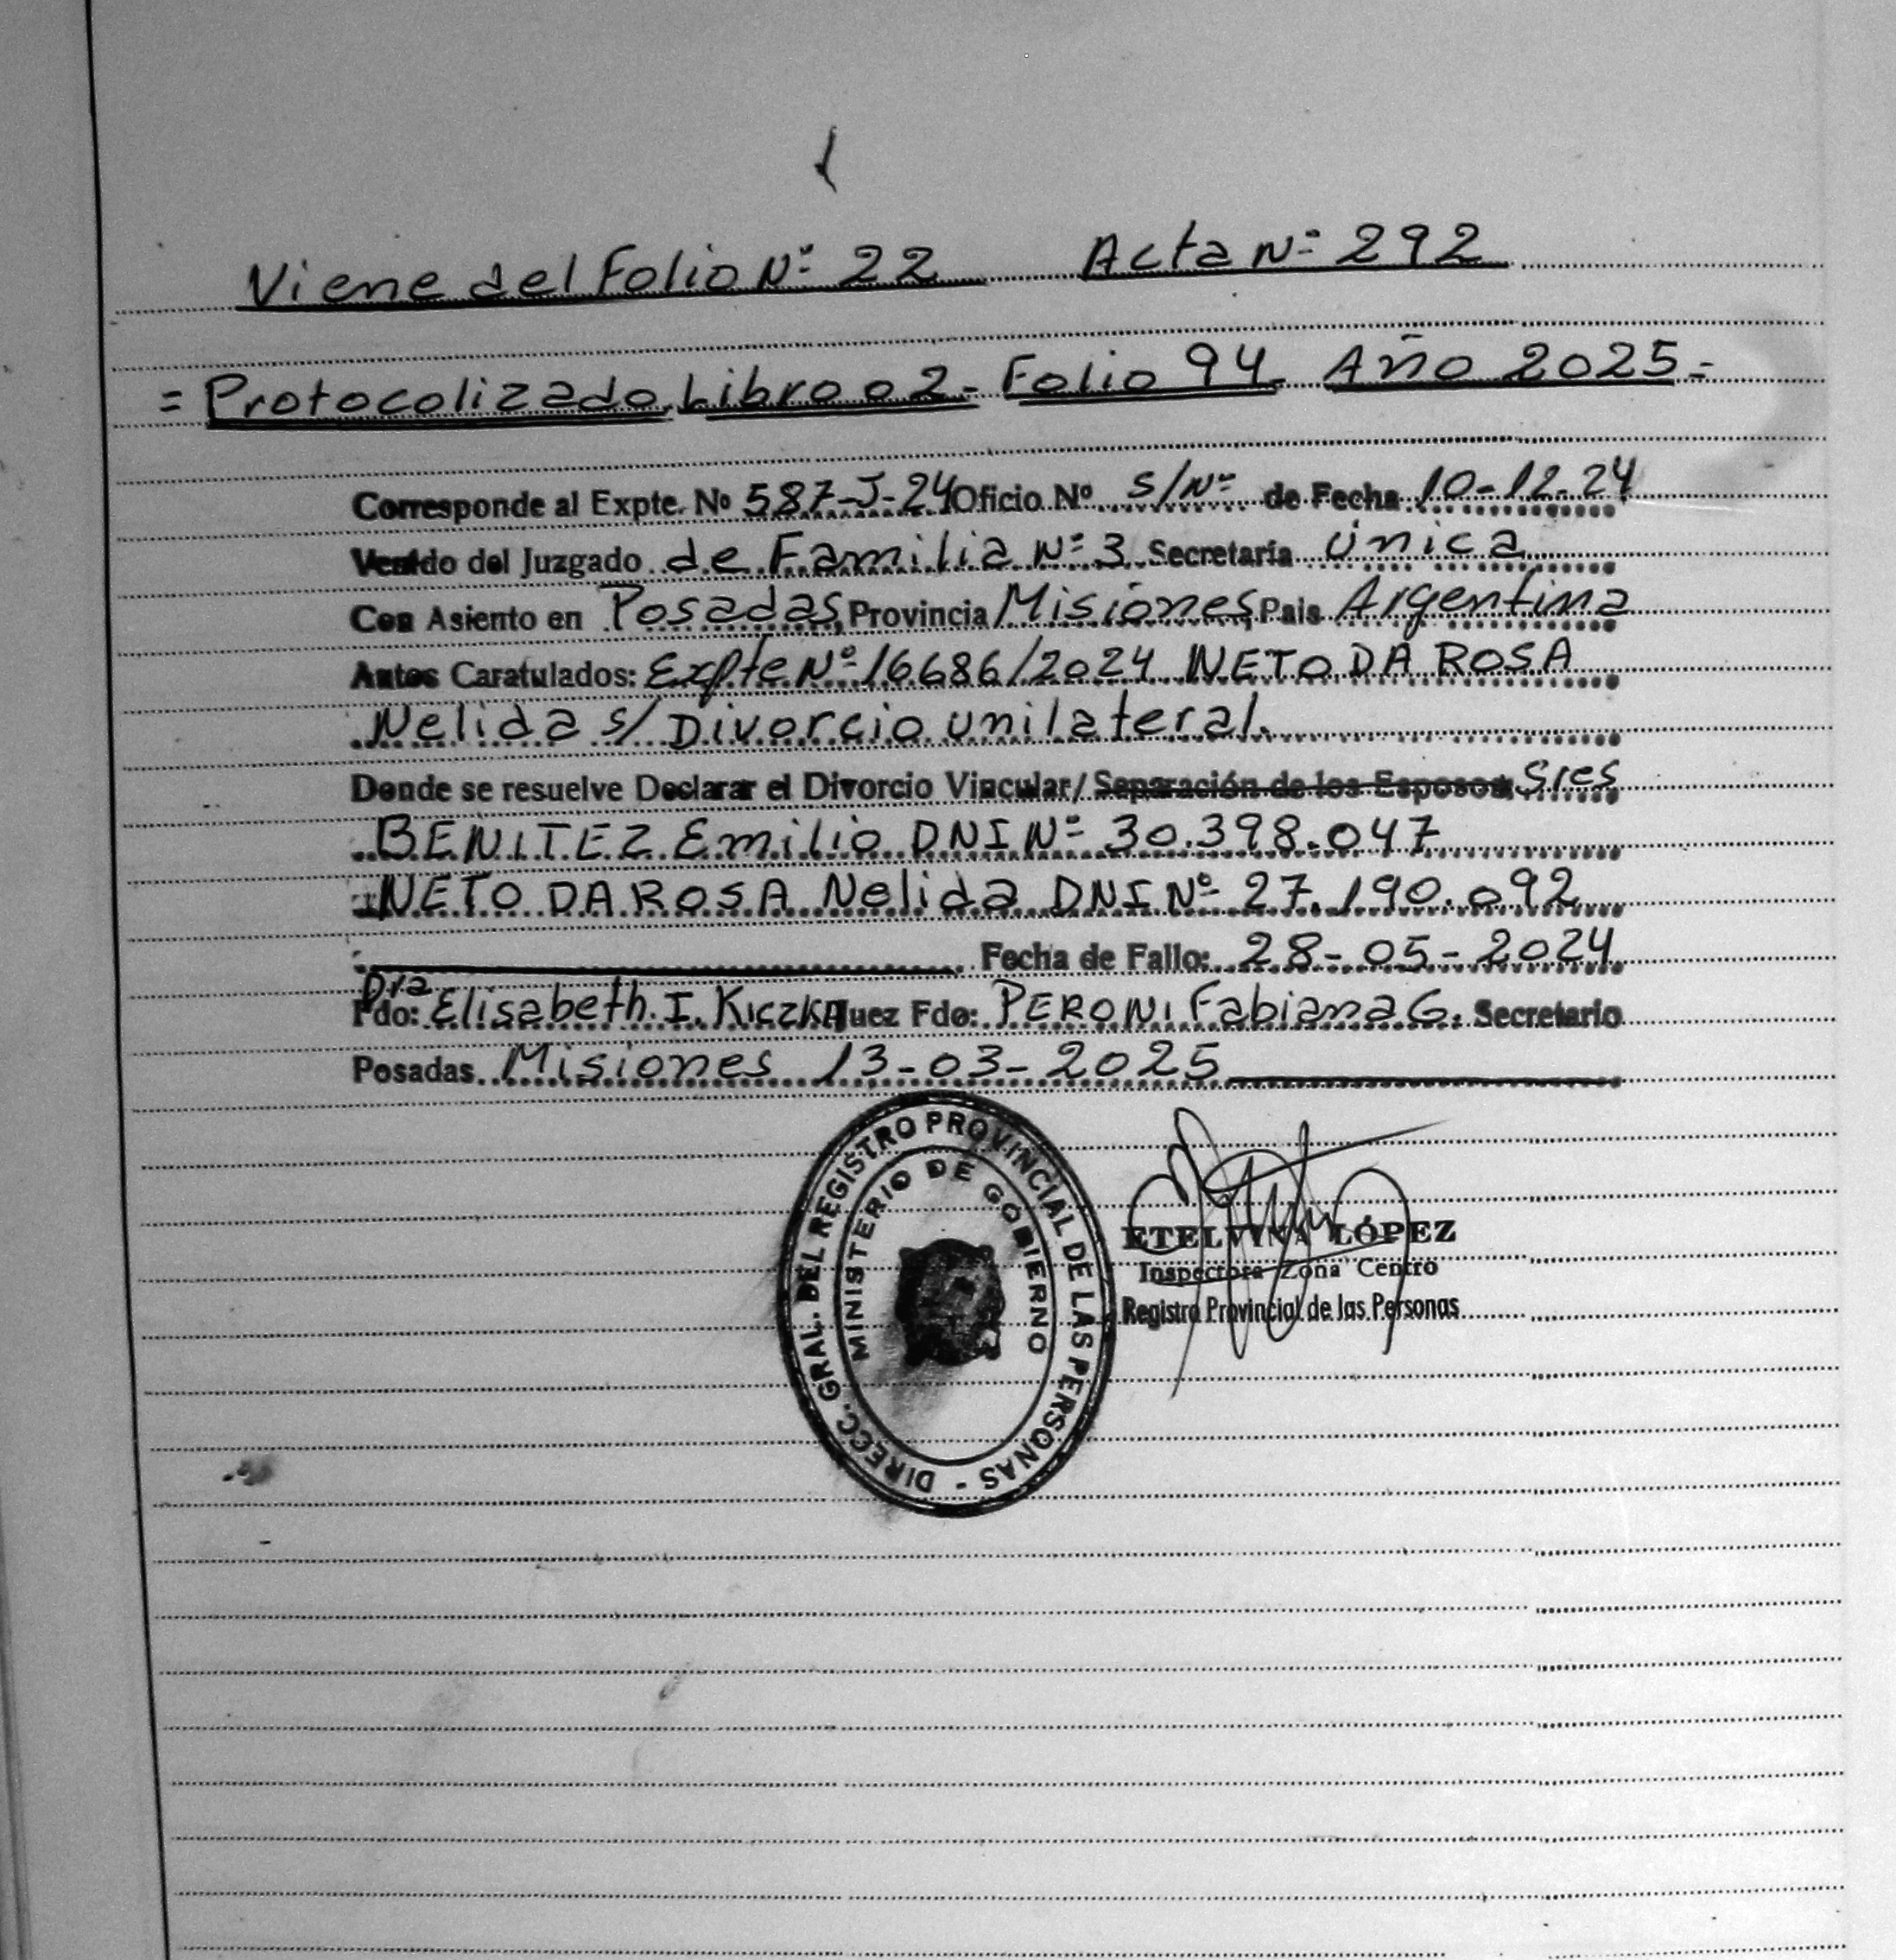 Viene del Folio Nº 22 Acta Nº 292
= Protocolizado Libro 02 - Folio 94 - Año 2025 -
Corresponde al Expte. Nº 587-J-24 Oficio Nº S/Nº de Fecha 10-12-24
Venido del Juzgado de Familia Nº 3 Secretaría Única
Con Asiento en Posadas, Provincia Misiones, Pais Argentina
Autos Caratulados: Expte Nº 16686/2024 NETO DA ROSA
Nelida s/ Divorcio unilateral.
Donde se resuelve Declarar el Divorcio Vincular/ Separación de los Esposos Sres
BENITEZ Emilio DNI Nº 30.398.047
NETO DA ROSA Nelida DNI Nº 27.190.092
Fecha de Fallo: 28-05-2024
Fdo: Dra Elisabeth. I. KiczKA Juez Fdo: PERONI Fabiana G. Secretario
Posadas Misiones 13-03-2025
DIRECC. GRAL. DEL REGISTRO PROVINCIAL DE LAS PERSONAS -
MINISTERIO DE GOBIERNO
ETELVINA LÓPEZ
Inspectora Zona Centro
Registro Provincial de las Personas